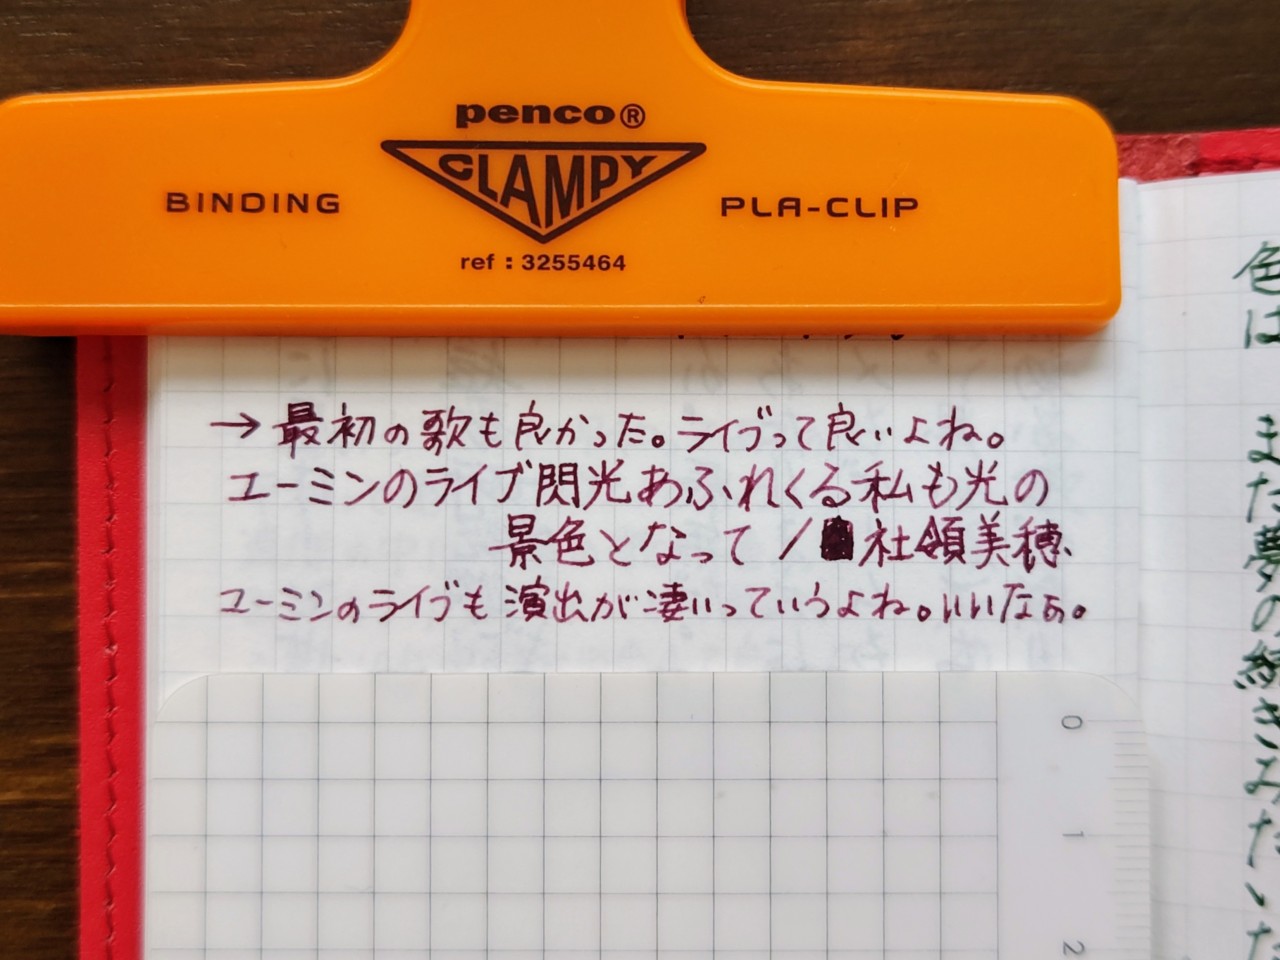 penco®
CLAMPY
BINDING
PLA-CLIP
ref : 3255464
→ 最初の歌も良かった。ライブって良いよね。
ユーミンのライブ閃光あふれくる私も光の
景色となって / 社領美穂
ユーミンのライブも演出が凄いっていうよね。いいなぁ。
0
1
2
色は
また夢の続きみたいだ